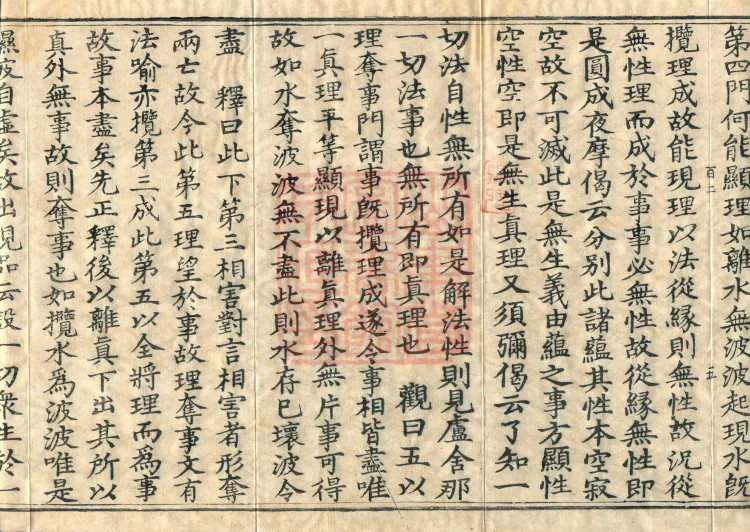 第四門何能顯理如離水無波波起現水旣
攬理成故能現理以法從緣則無性故況從
無性理而成於事事必無性故從緣無性即
是圓成夜摩偈云分別此諸蘊其性本空寂
空故不可滅此是無生義由蘊之事方顯性
空性空即是無生真理又須彌偈云了知一
切法自性無所有如是解法性則見盧舍那
一切法事也無所有即真理也 觀曰五以
理奪事門謂事旣攬理成遂令事相皆盡唯
一真理平等顯現以離真理外無片事可得
故如水奪波波無不盡此則水存已壞波令
盡 釋曰此下第三相害對言相害者形奪
兩亡故今此第五理望於事故理奪事文有
法喻亦攬第三成此第五以全將理而為事
故事本盡矣先正釋後以離真下出其所以
真外無事故則奪事也如攬水為波波唯是
濕波自虛矣故出現品云設一切衆生於一
百二
五